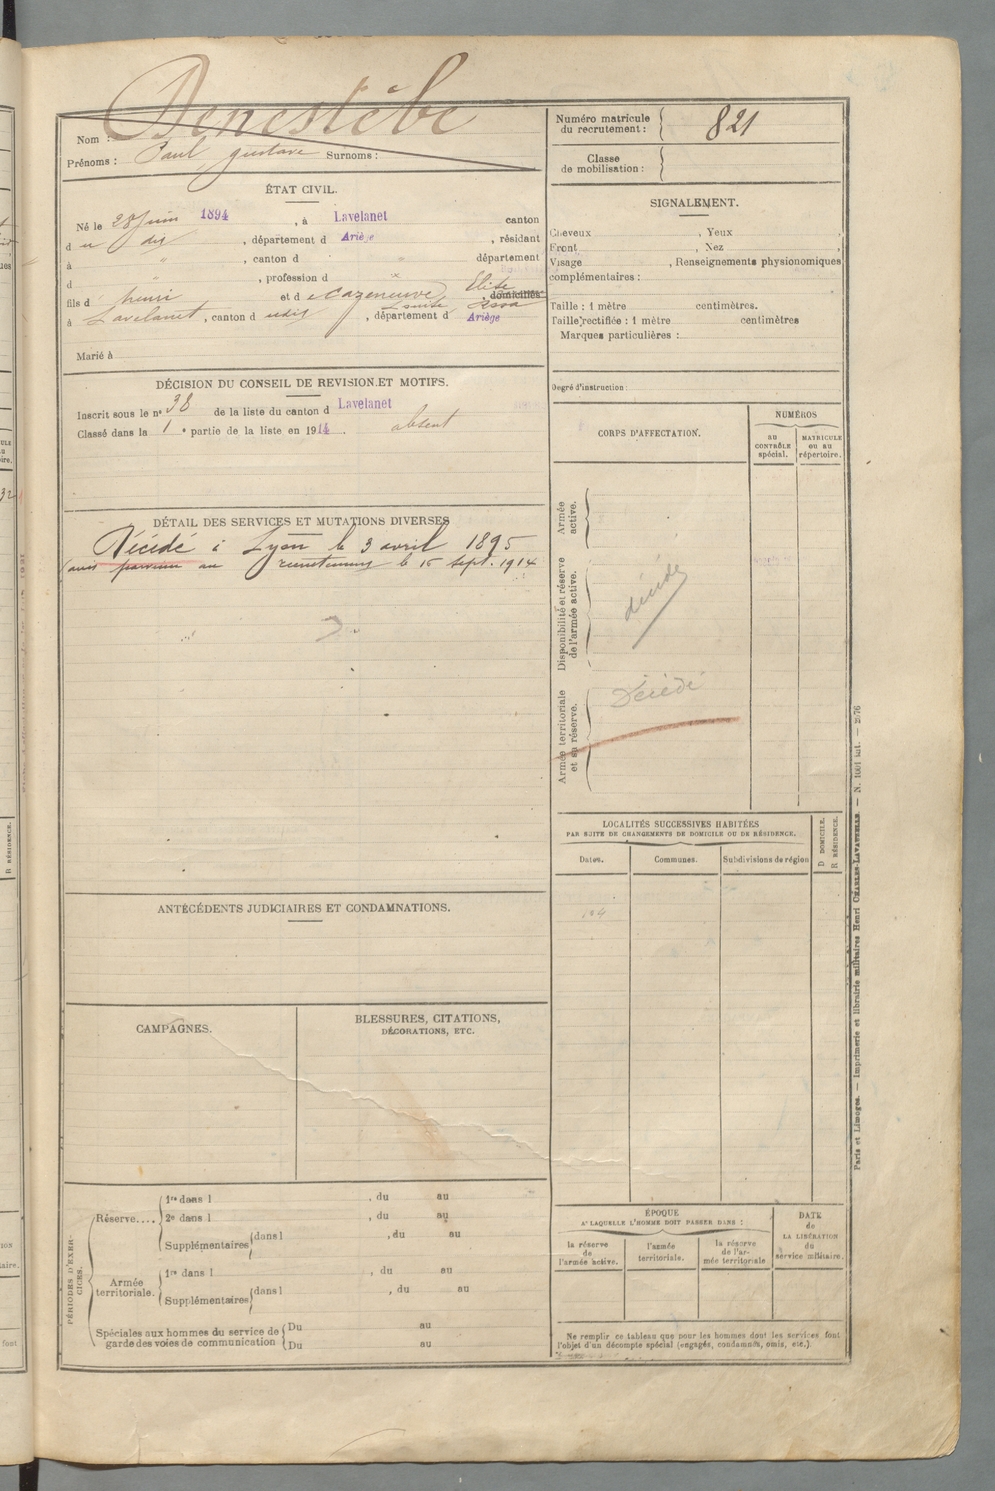 Nom : Denestèbe
Prénoms : Paul gustave Surnoms :
Numéro matricule du recrutement : 821
Classe de mobilisation :
ÉTAT CIVIL.
Né le 28 Juin 1894, à Lavelanet canton
d u dit, département d Ariège, résidant
à " , canton d " département
d " , profession d x
fils d henri et d e Cazeneuve Elise domiciliés
Louise Rosa
à Lavelanet, canton d udit, département d Ariège
Marié à
SIGNALEMENT.
Cheveux , Yeux ,
Front , Nez ,
Visage , Renseignements physionomiques
complémentaires :
Taille : 1 mètre centimètres.
Taille rectifiée : 1 mètre centimètres
Marques particulières :
Degré d'instruction :
DÉCISION DU CONSEIL DE REVISION ET MOTIFS.
Inscrit sous le n° 38 de la liste du canton d Lavelanet
Classé dans la 1e partie de la liste en 1914. absent
CORPS D'AFFECTATION.
NUMÉROS
AU CONTRÔLE spécial.
MATRICULE ou au répertoire.
Armée active.
Disponibilité et réserve de l'armée active.
décédé
Armée territoriale et sa réserve.
Décédé
DÉTAIL DES SERVICES ET MUTATIONS DIVERSES
Décédé à Lyon le 3 avril 1895
(avis parvenu au recrutement le 15 sept. 1914
LOCALITÉS SUCCESSIVES HABITÉES
PAR SUITE DE CHANGEMENTS DE DOMICILE OU DE RÉSIDENCE.
Dates.
Communes.
Subdivisions de région
D DOMICILE.
R RÉSIDENCE.
ANTÉCÉDENTS JUDICIAIRES ET CONDAMNATIONS.
CAMPAGNES.
BLESSURES, CITATIONS,
DÉCORATIONS, ETC.
PÉRIODES D'EXERCICES.
Réserve....
1re dans l , du au
2e dans l , du au
Supplémentaires dans l , du au
Armée territoriale.
1re dans l , du au
Supplémentaires dans l , du au
Spéciales aux hommes du service de
garde des voies de communication
Du au
Du au
ÉPOQUE
A LAQUELLE L'HOMME DOIT PASSER DANS :
la réserve de l'armée active.
l'armée territoriale.
la réserve de l'armée territoriale
DATE de LA LIBÉRATION du service militaire.
Ne remplir ce tableau que pour les hommes dont les services font
l'objet d'un décompte spécial (engagés, condamnés, omis, etc.)
Paris et Limoges. — Imprimerie et librairie militaires Henri CHARLES-LAVAUZELLE.